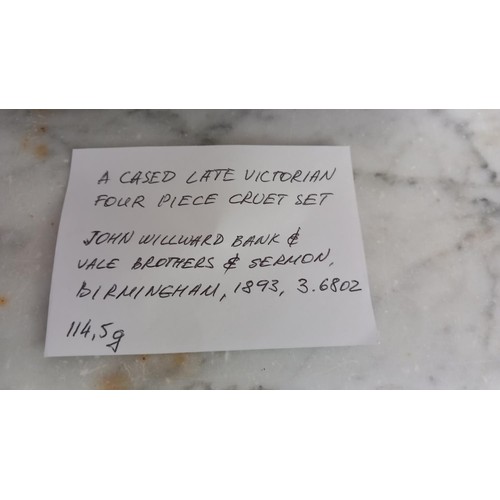 A CASED LATE VICTORIAN
FOUR PIECE CRUET SET
JOHN WILLWARD BANK &
VALE BROTHERS & SERMON,
BIRMINGHAM, 1893, 3.68OZ
114,5g